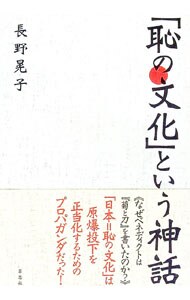 「恥の文化」という神話
長野晃子
《なぜベネディクトは
『菊と刀』を書いたのか？》
「日本=恥の文化」は
原爆投下を
正当化するための
プロパガンダだった！
草思社